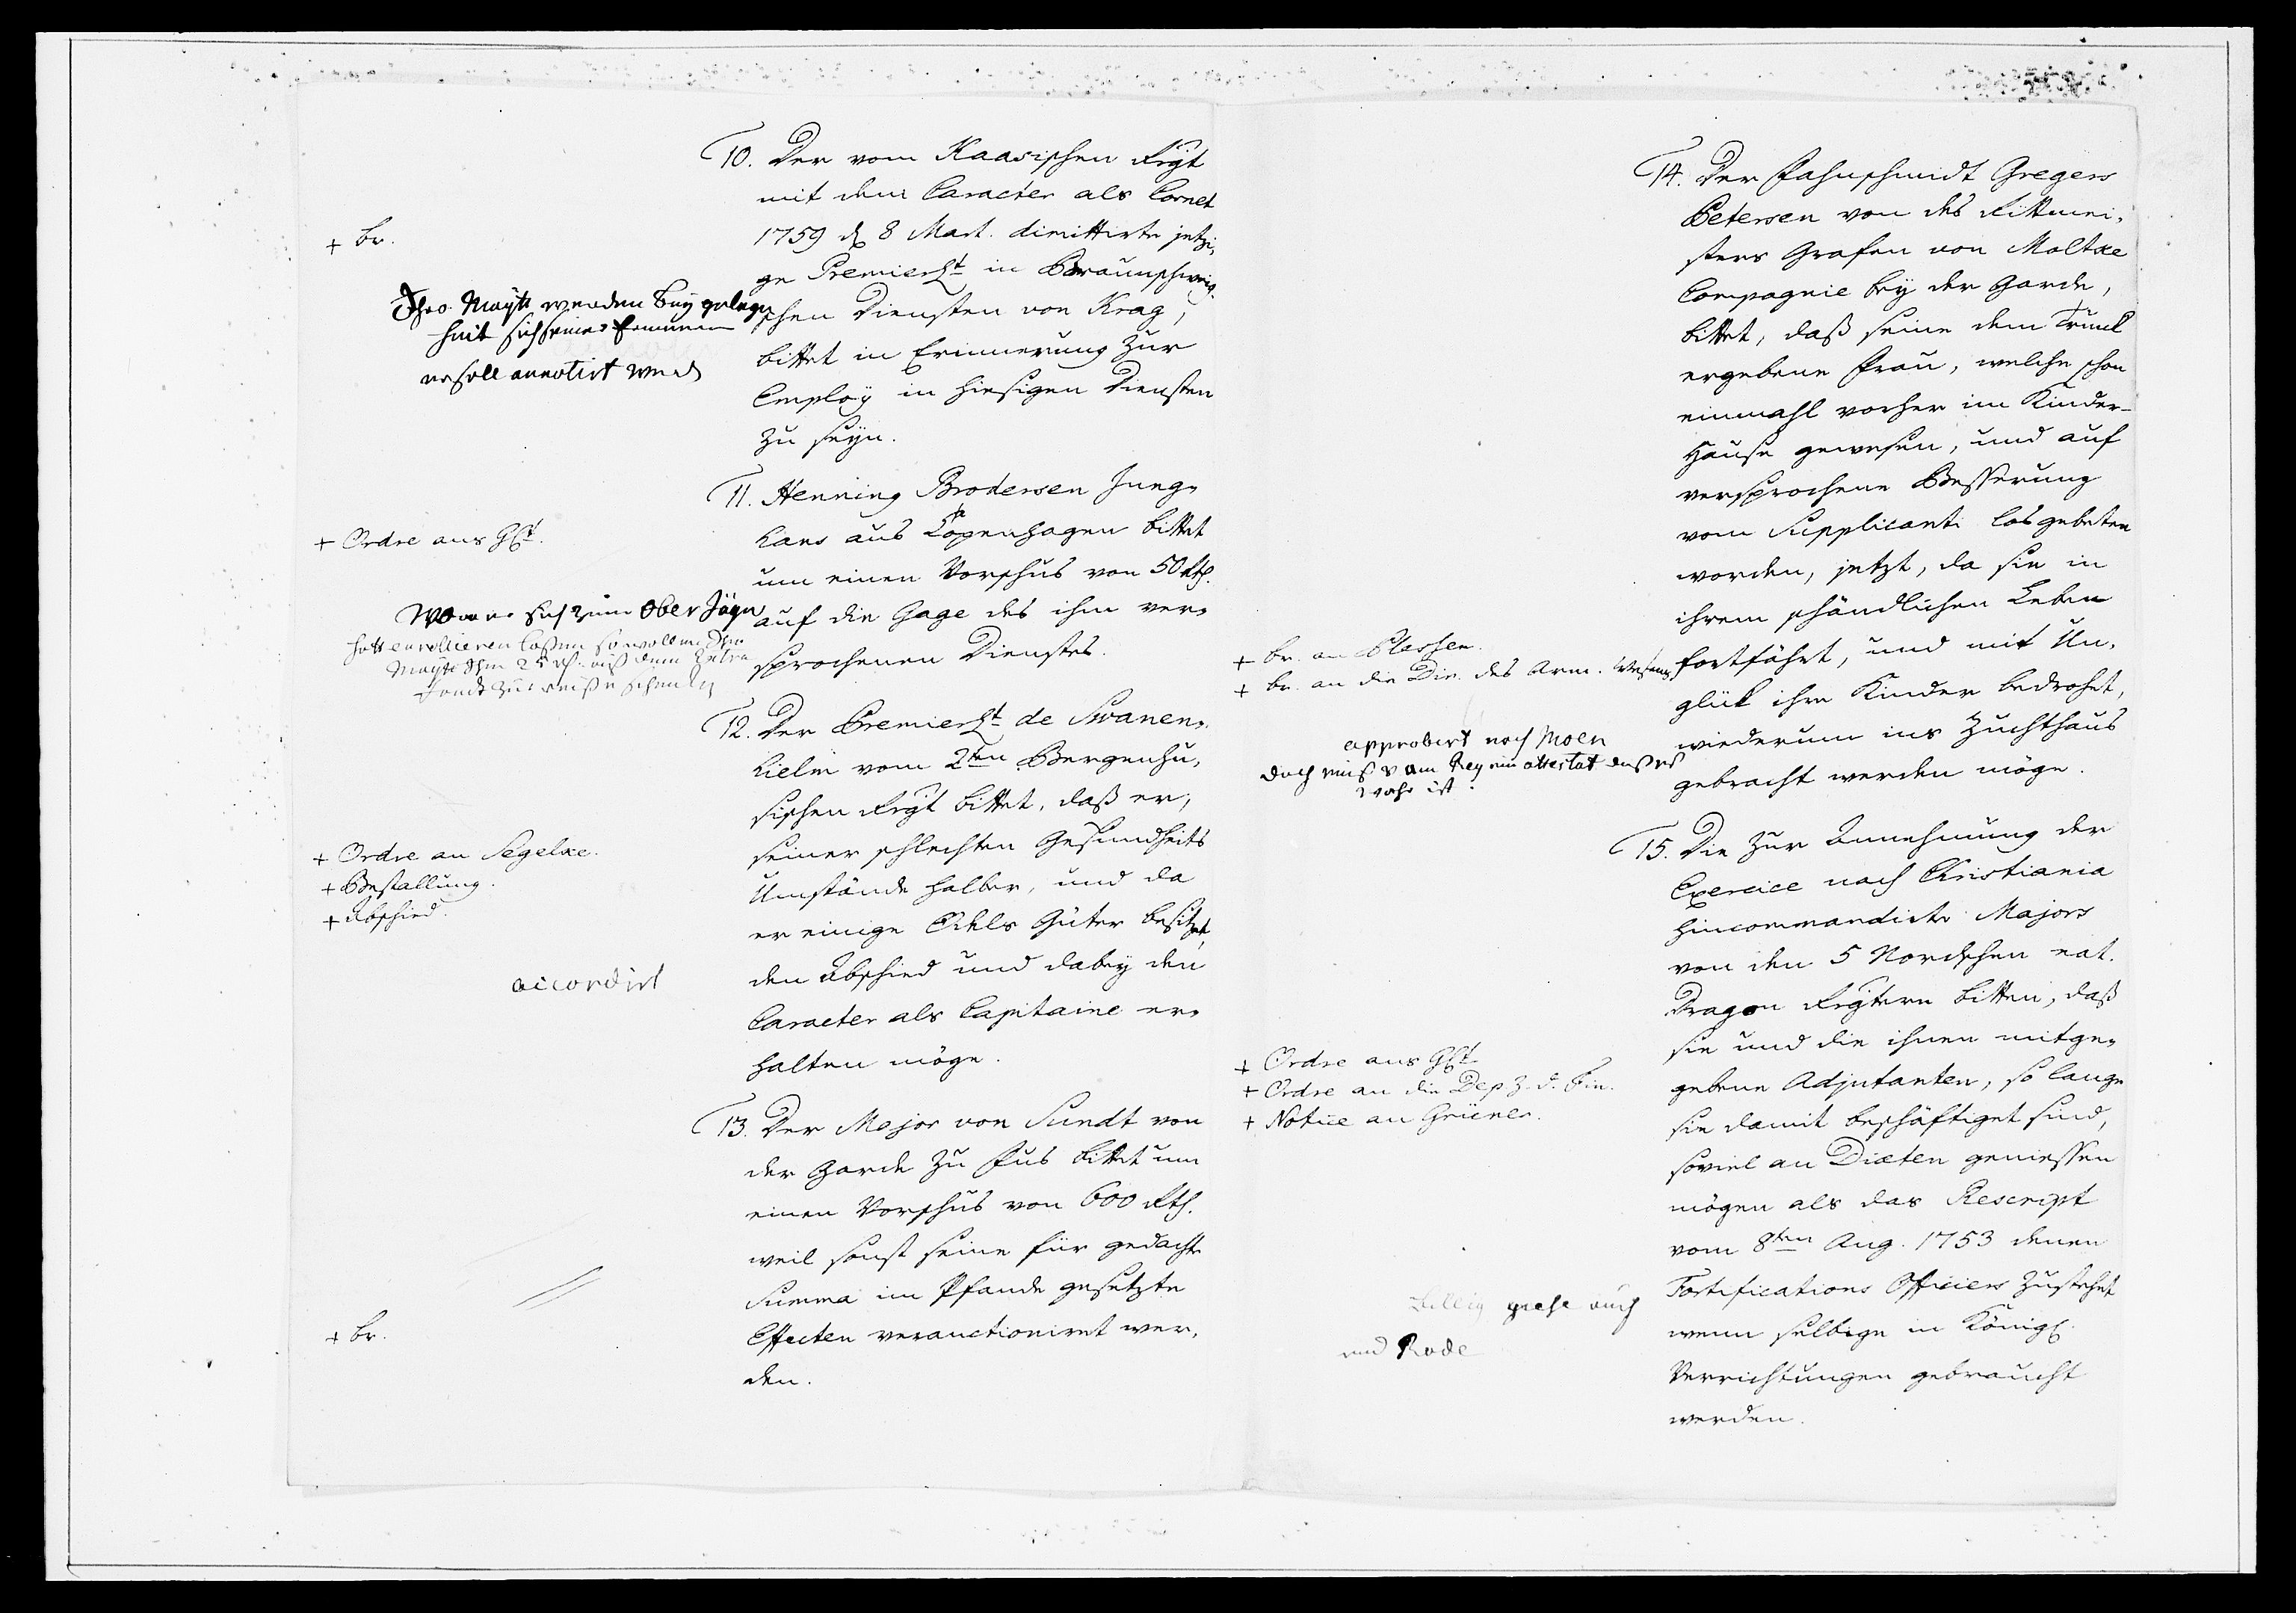 10. Der vom Kaasischen Rgt
mit dem Caracter als Cornet
1759 d 8 Mart. dimittirte jetzi-
ge Premierlt in Braunschweig-
schen Diensten von Krag,
bittet in Erinnerung zur
Employ in hiesigen Diensten
zu seyn.
+ br.
Ihro Maytt werden bey gelegen
heit sich seiner
er soll annotirt werden
11. Henning Brodersen Jung-
hans aus Copenhagen bittet
um einen Vorschus von 50 Rth.
auf die Gage des ihm ver-
sprochenen Dienstes.
+ Ordre ans
Wo er sich zum Ober Jäger
hatt enrollieren laßen so wollen Ihro
Maytt Ihm 25 rh. auß dem Extra
12. Der Premierlt de Svanen-
hielm vom 2ten Bergenhu-
sischen Rgt bittet, daß er,
seiner schlechten Gesundheits
Umstände halber, und da
er einige Odels Güter besitzet,
den Abschied und dabey den
Caracter als Capitaine er-
halten möge.
+ Ordre an Segelke.
+ Bestallung.
+ Abschied.
accordirt
13. Der Major von Sundt von
der Garde zu Fus bittet um
einen Vorschus von 600 Rth.
weil sonst seine für gedachte
Summa im Pfande gesetzte
Effecten verauctioniret wer-
den.
+ br.
14. Der Fahnschmidt Gregers
Petersen von des Rittmei-
sters Grafen von Moltke
Compagnie bey der Garde,
bittet, daß seine dem Trunk
ergebene Frau, welche schon
einmahl vorher im Kinder-
Hause gewesen, und auf
versprochene Besserung
vom Supplicanti losgebeten
worden, jetzt, da sie in
ihrem schändlichen Leben
fortfährt, und mit Un-
glük ihre Kinder bedrohet,
wiederum ins Zuchthaus
gebracht werden möge.
+ br. an Plessen.
+ br. an die Dir. des Arm. Wesens
approbirt nach Moen
doch muß vom Reg ein attestat daß es
wahr ist.
15. Die zur Annehmung der
Exercice nach Christiania
hincommandirte Majors
von den 5 Nordschen nat.
Dragon Rgtern bitten, daß
sie und die ihnen mitge-
gebene Adjutanten, so lange
sie damit beschäftiget sind,
soviel an Diæten geniessen
mögen als das Rescript
vom 8ten Aug. 1753 denen
Fortifications Officiers zustehet
wenn selbige in Königl.
Verrichtungen gebraucht
werden.
+ Ordre ans
+ Ordre an die Dep. z. d. Fin.
+ Notice an Grüner.
Billig auch
und Rode